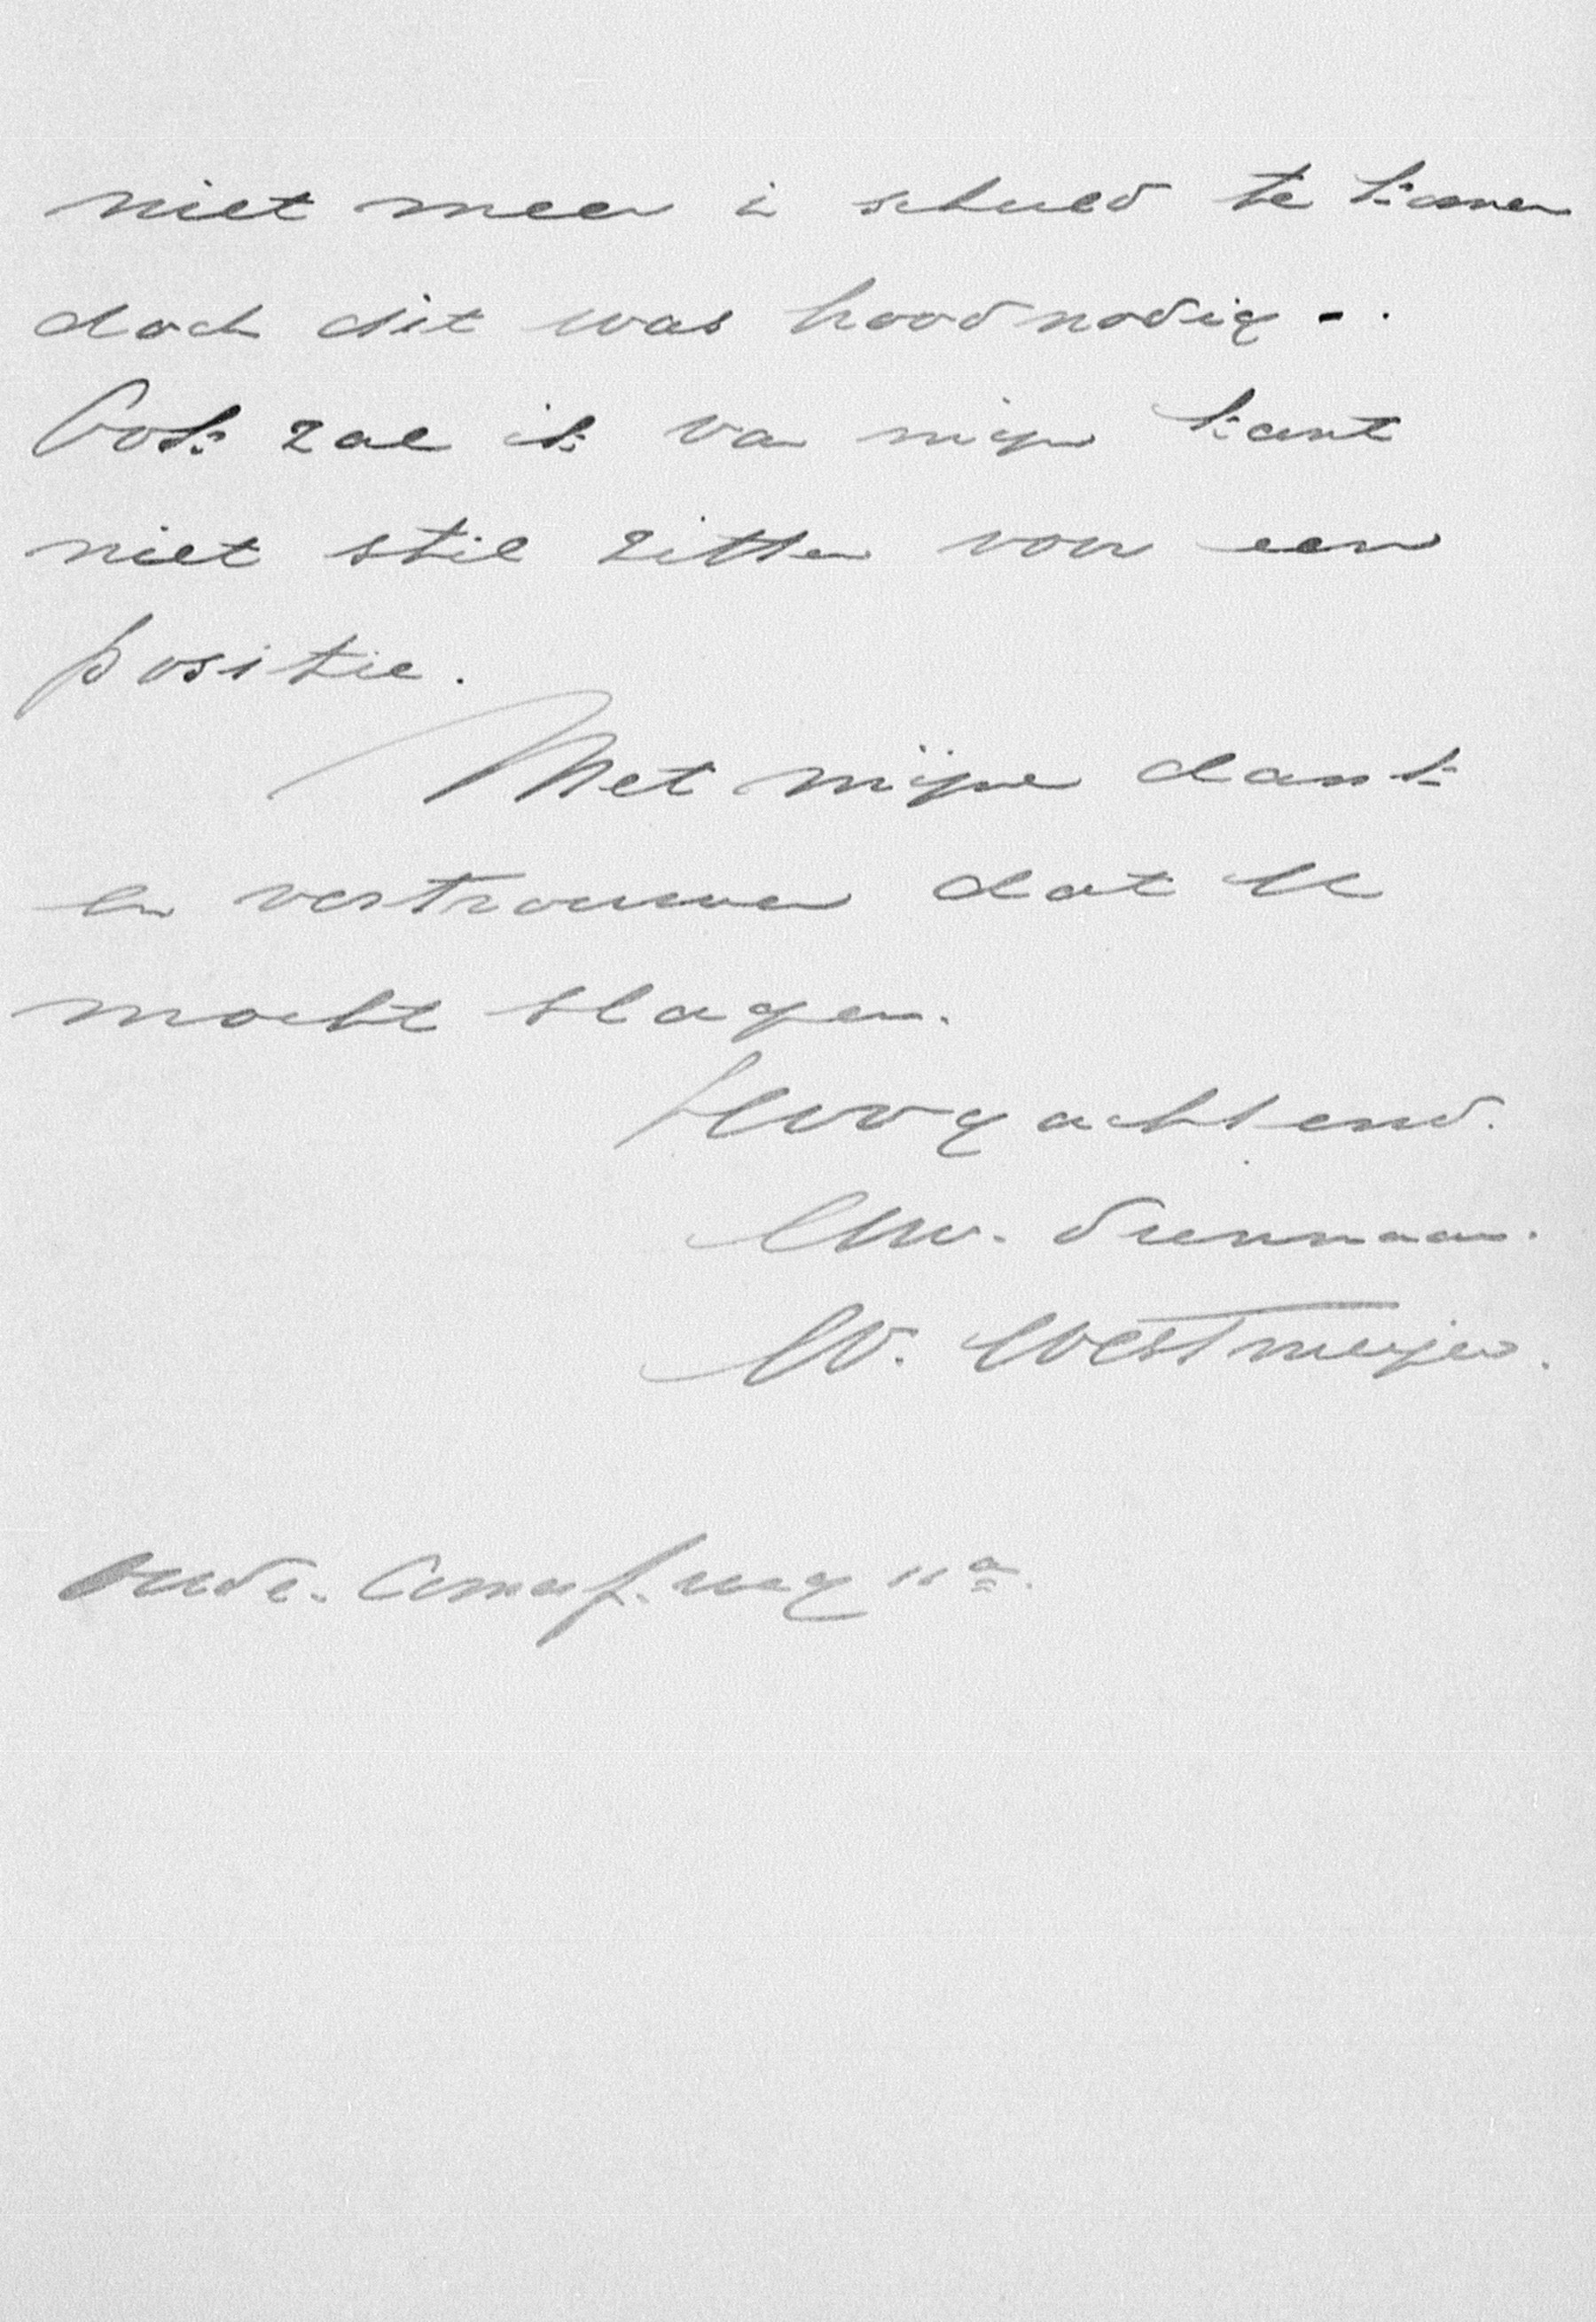 niet meer in schuld te komen
doch dit was hoodnodig - .
Ook zal ik van mijn kant
niet stil zitten voor een
positie.
Met mijne dank
en vertrouwen dat U
mocht slagen.
Hoogachtend.
Uw. Dienaar.
W. Westmeijer.
Oude. 11a.